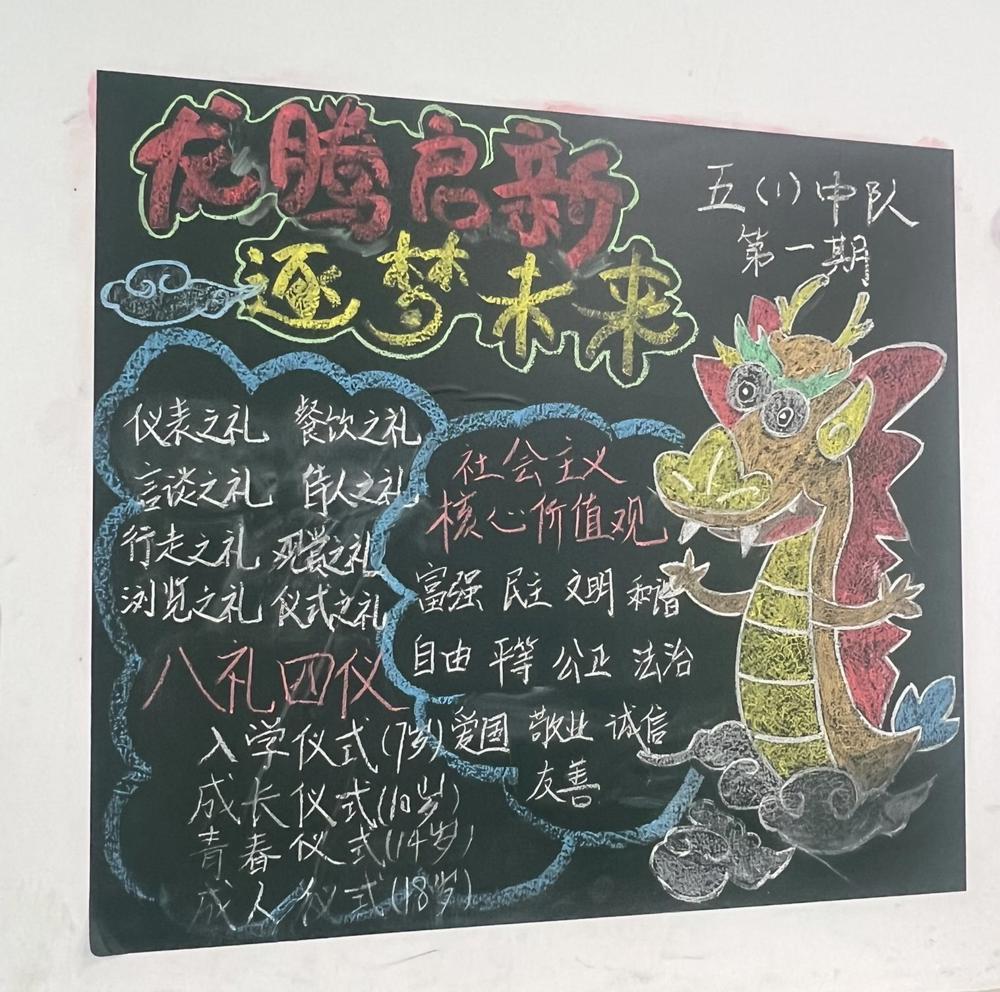 龙腾启新
逐梦未来
五(1)中队
第一期
仪表之礼 餐饮之礼
言谈之礼 待人之礼
行走之礼 观赏之礼
浏览之礼 仪式之礼
八礼四仪
入学仪式(7岁)
成长仪式(10岁)
青春仪式(14岁)
成人仪式(18岁)
社会主义
核心价值观
富强 民主 文明 和谐
自由 平等 公正 法治
爱国 敬业 诚信
友善